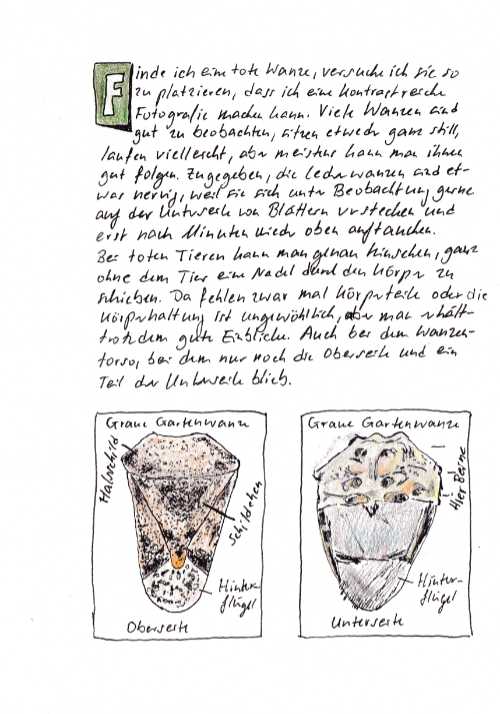 Finde ich eine tote Wanze, versuche ich sie so
zu platzieren, dass ich eine kontrastreiche
Fotografie machen kann. Viele Wanzen sind
gut zu beobachten, sitzen etweder ganz still,
laufen vielleicht, aber meistens kann man ihnen
gut folgen. Zugegeben, die Lederwanzen sind et-
was nervig, weil sie sich unter Beobachtung gerne
auf der Unterseite von Blättern verstecken und
erst nach Minuten wieder oben auftauchen.
Bei toten Tieren kann man genau hinsehen, ganz
ohne dem Tier eine Nadel durch den Körper zu
schieben. Da fehlen zwar mal Körperteile oder die
Körperhaltung ist ungewöhlich, aber man erhält
trotzdem gute Einblicke. Auch bei dem Wanzen-
torso, bei dem nur noch die Oberseite und ein
Teil der Unterseite blieb.
Graue Gartenwanze
Halsschild
Schildchen
Hinter-
flügel
Oberseite
Graue Gartenwanze
Hier Beine
Hinter-
flügel
Unterseite